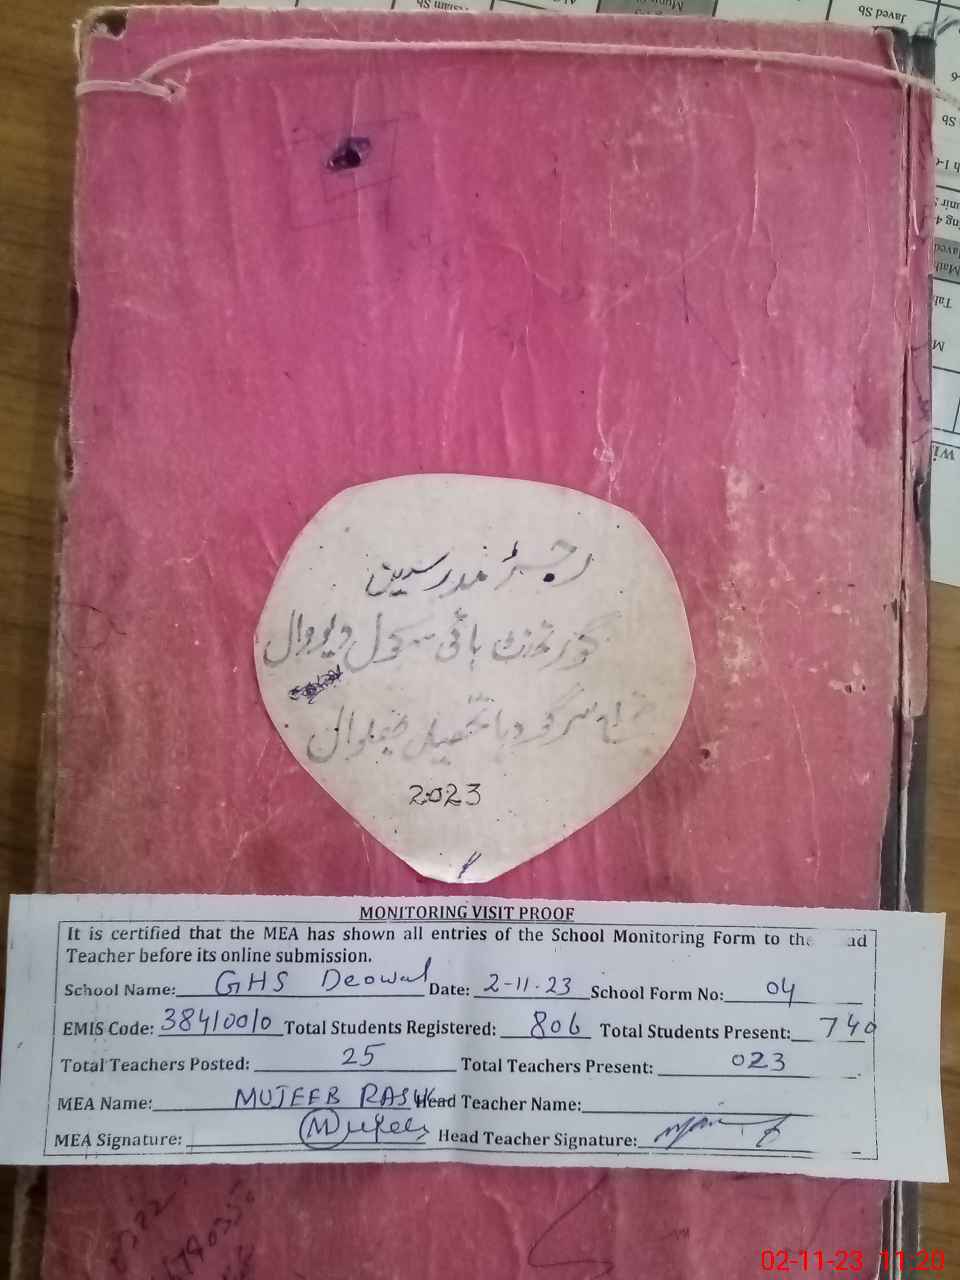 Javed Sb
رجسٹر مدرسین
گورنمنٹ ہائی سکول دیووال
ضلع سرگودہا تحصیل بھلوال
2023
MONITORING VISIT PROOF
It is certified that the MEA has shown all entries of the School Monitoring Form to the ad
Teacher before its online submission.
School Name: GHS Deowal Date: 2-11-23 School Form No: 04
EMIS Code: 38410010 Total Students Registered: 806 Total Students Present: 740
Total Teachers Posted: 25 Total Teachers Present: 023
MEA Name: MUJEEB Head Teacher Name:
MEA Signature: Mujeeb Head Teacher Signature:
02-11-23 11:20